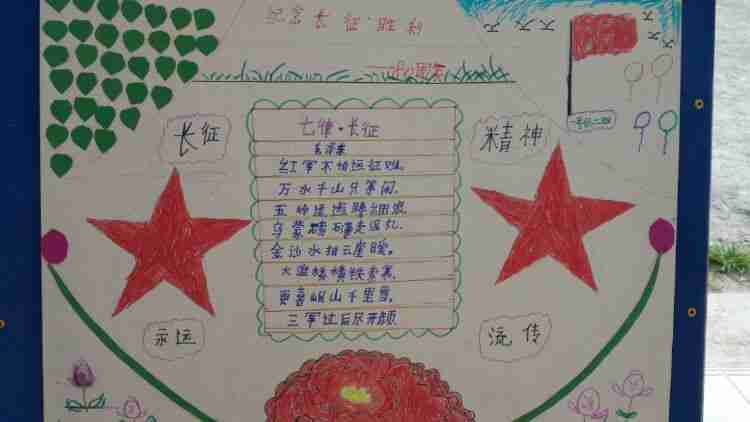 纪念长征·胜利
长征
精神
七律·长征
毛泽东
红军不怕远征难,
万水千山只等闲.
五岭逶迤腾细浪
乌蒙磅礴走泥丸.
金沙水拍云崖暖。
大渡桥横铁索寒.
更喜岷山千里雪,
三军过后尽开颜.
永远
流传